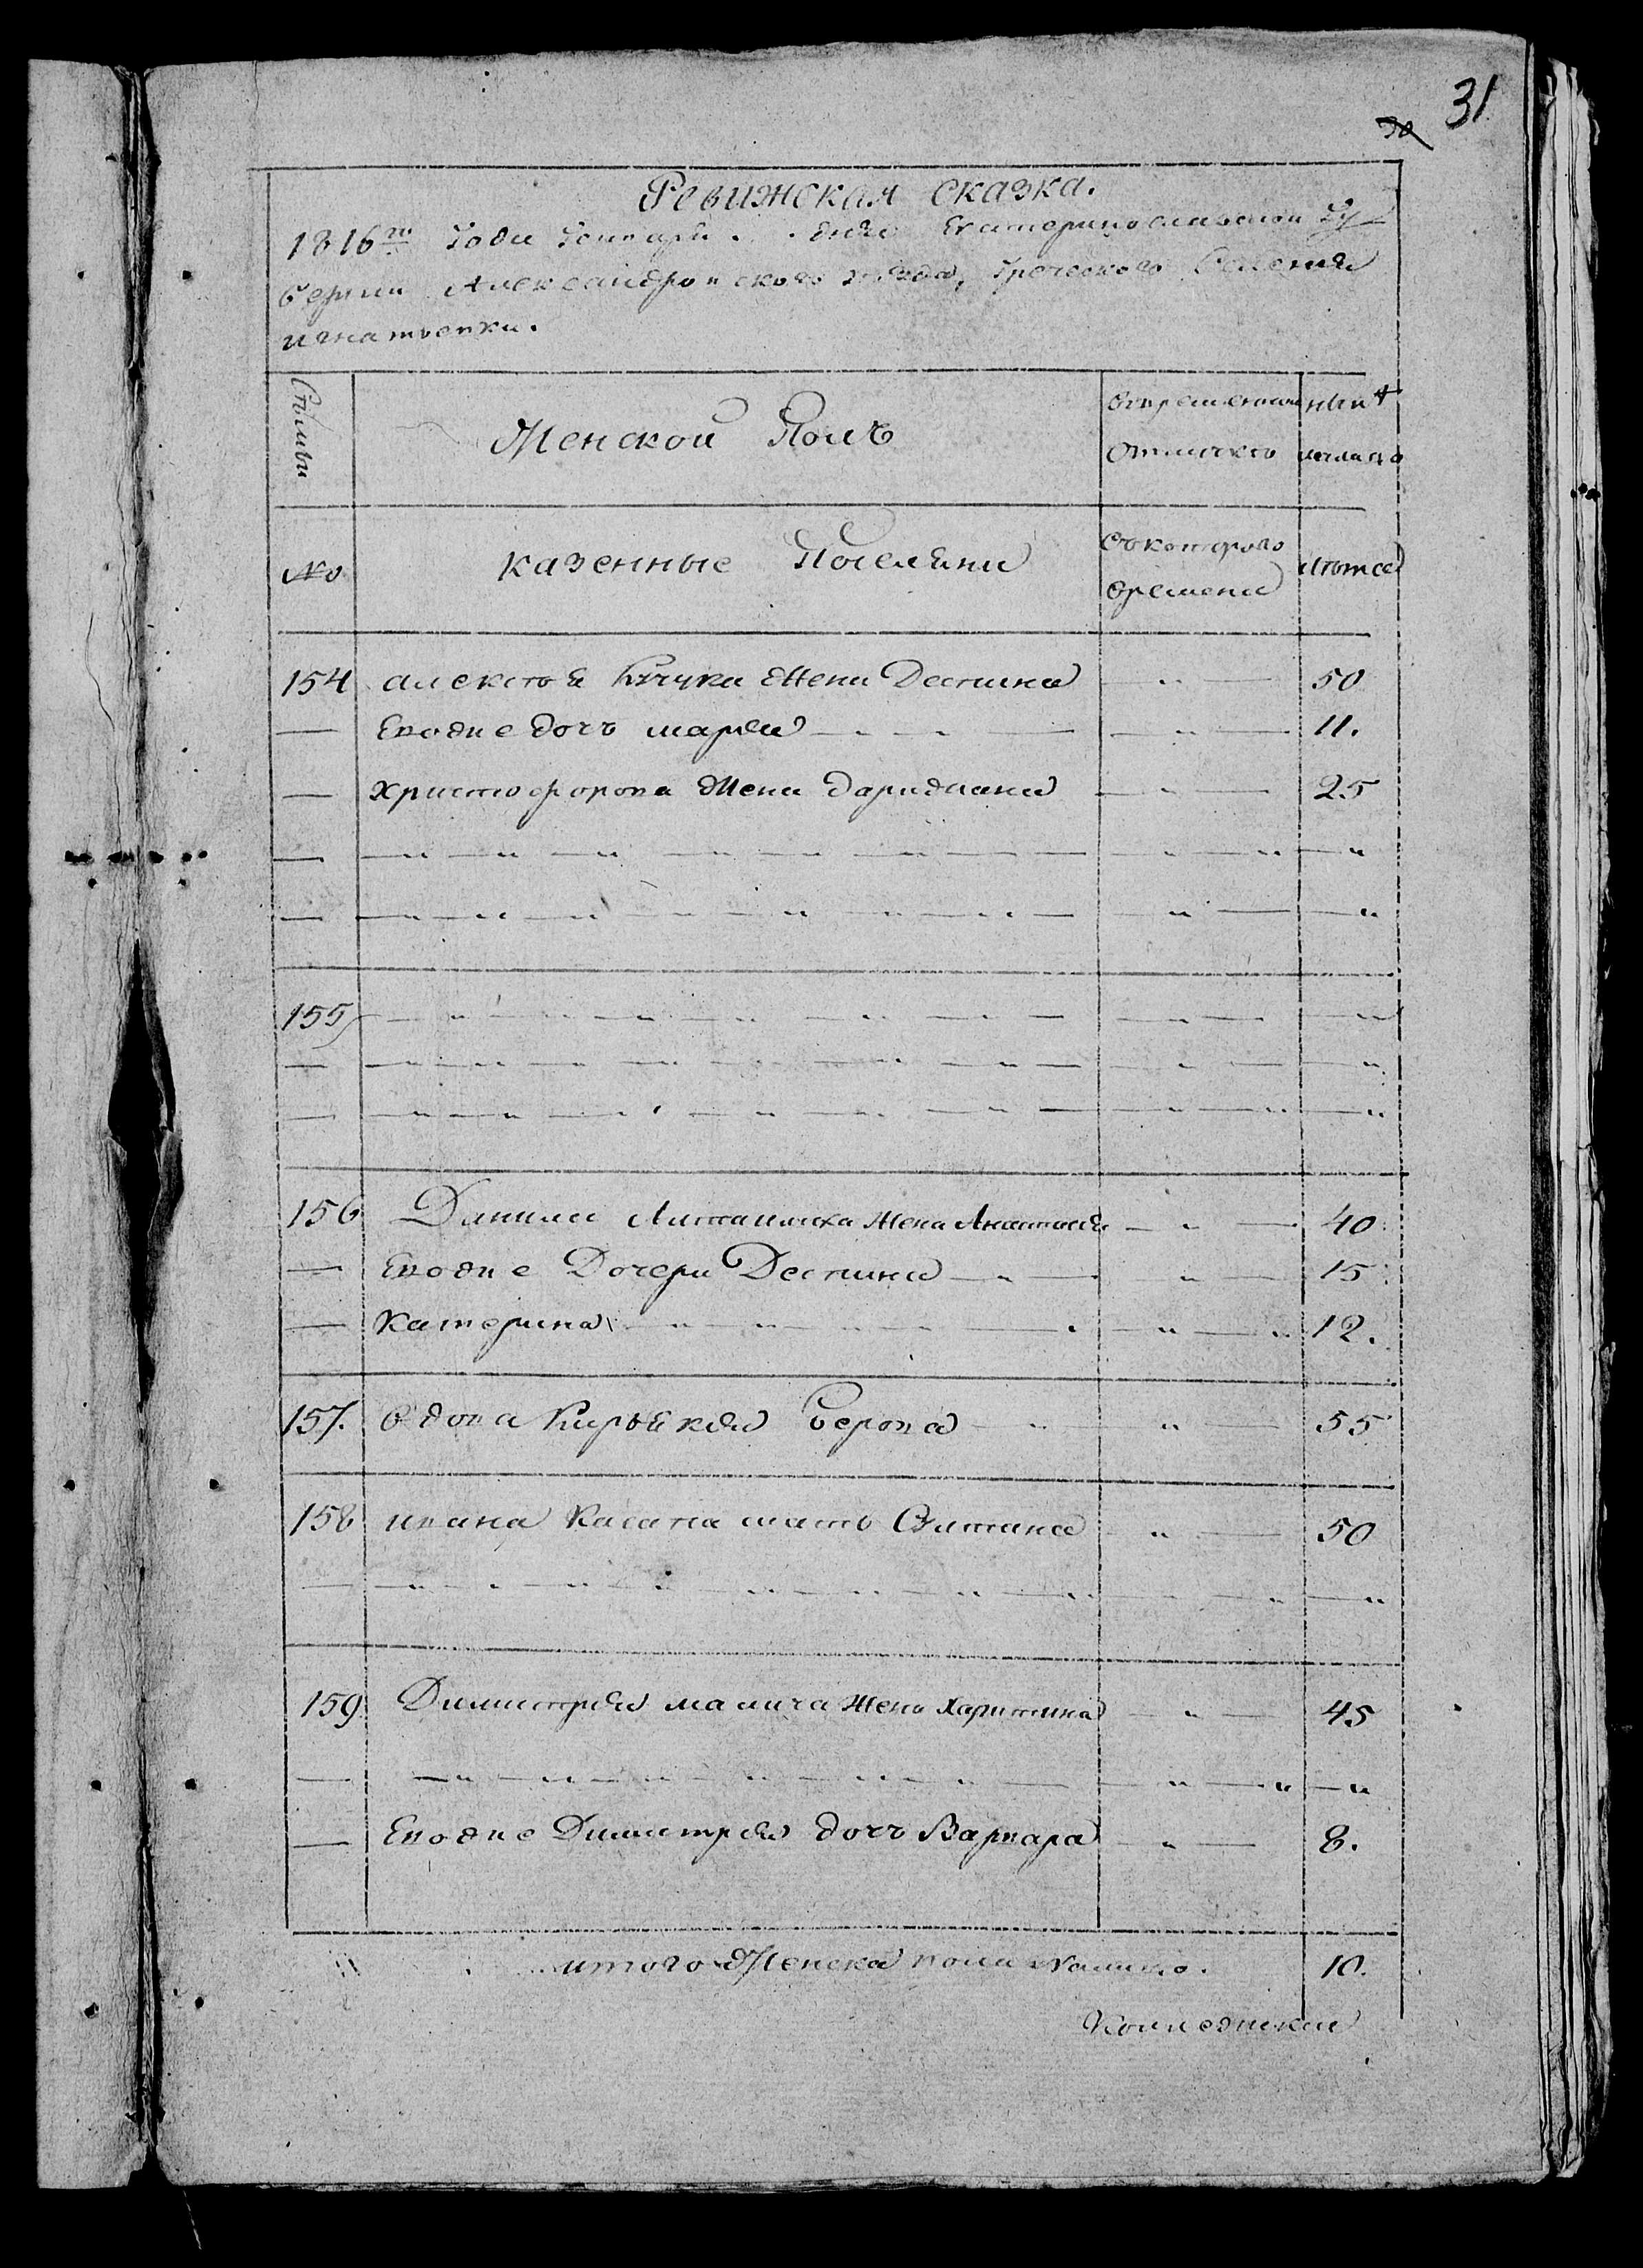 31
30
Ревижская сказка.
1816го Года Генваря . . дня Екатеринославской Гу
бернии Александровского уезда, Греческого Селения
игнатьевки.
Семьи
Женской Полъ
Вовременной
отлучке
ныне
налицо
№
казенные Поселяни
Съ которого
времени
лета
154 алексея Кечука Жена Деспина — " — 50
— Евоже дочь мария — " — — " — 11.
— Христофорова Жена Даридиана — " — 25
— — " — " — " — " — "
— — " — " — " — " — "
155 — " — " — " — " — "
— — " — " — " — " — "
— — " — " — " — " — "
156 Данила Жена Анастасия — " — 40
— Евоже Дочери Деспина — " — " — 15
— Катерина — " — " — 12.
157. вдова Кирьякия — " — " — 55
158 ивана Касапа мать Султана " — 50
— — " — " — " — " — "
159 Димитрия малича Жена Харитина — " — 45
— — " — " — " — " — "
— Евоже Димитрия дочь Варвара — " — 8.
итого Женска пола налицо. 10.